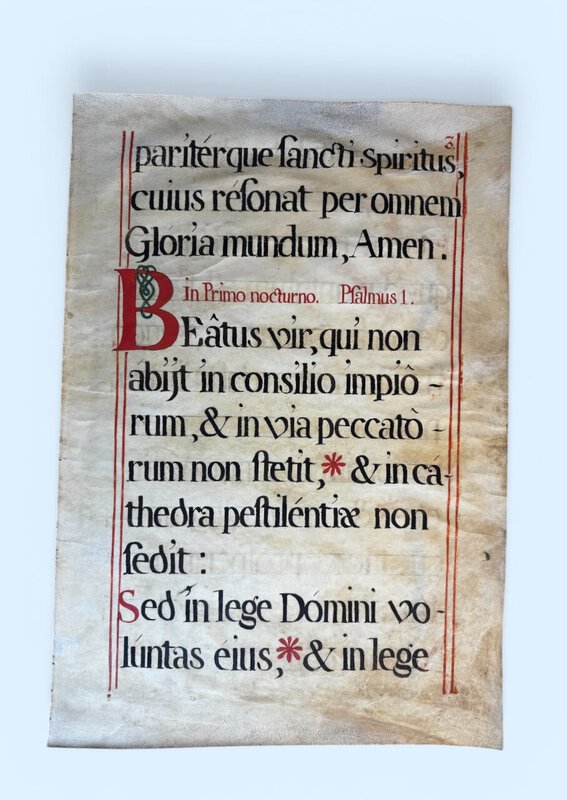 3
paritérque ſancti spiritus,
cuius réſonat per omnem
Gloria mundum, Amen.
In Primo nocturno. Pſalmus 1.
BEâtus vir, qui non
ábijt in consilio impiô-
rum, & in via peccatò-
rum non ſtetit,* & in cá-
thedra peſtiléntiæ non
ſedit:
Sed in lege Dómini vo-
lúntas eius,* & in lege